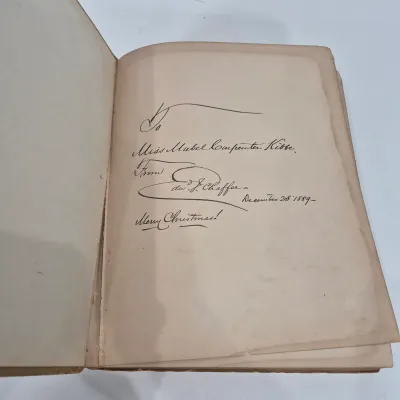 To
Miss Mabel Carpenter Kibbe.
From
Edwd J. Chaffee
December 25th 1889
Merry Christmas!